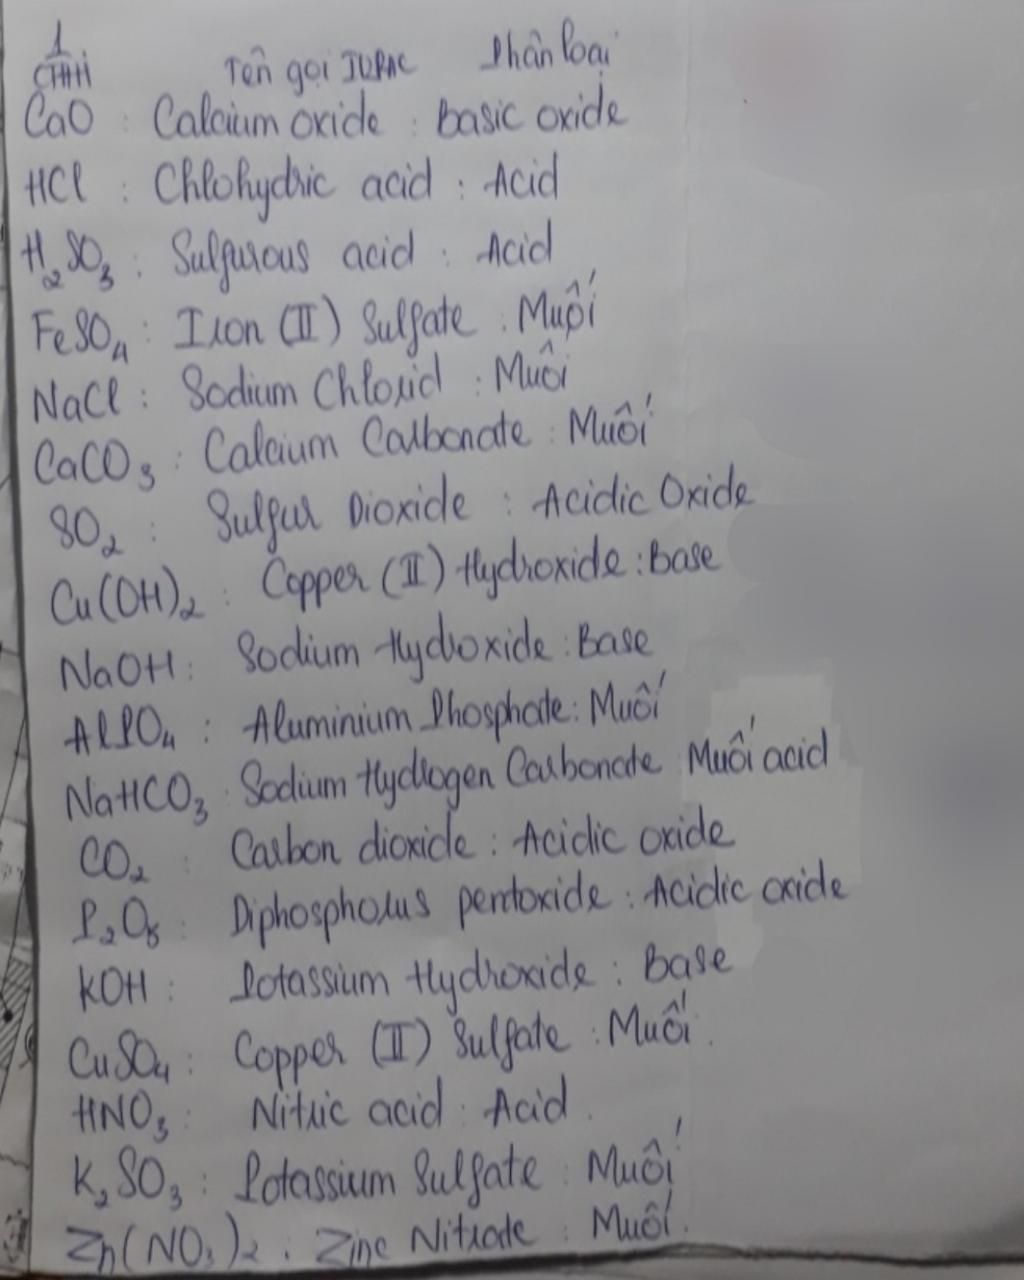 1
CTHH Tên gọi IUPAC Phân loại
CaO : Calcium oxide : Basic oxide
HCl : Chlohydric acid : Acid
H₂SO₃ : Sulfurous acid : Acid
FeSO₄ : Iron (II) Sulfate : Muối
NaCl : Sodium Chlorid : Muôi
CaCO₃ : Calcium Carbonate : Muối
SO₂ : Sulfur Dioxide : Acidic Oxide
Cu(OH)₂ : Copper (II) Hydroxide : Base
NaOH : Sodium Hydroxide : Base
AlPO₄ : Aluminium Phosphate : Muối
NaHCO₃ : Sodium Hydrogen Carbonate Muối acid
CO₂ : Carbon dioxide : Acidic oxide
P₂O₅ : Diphosphorus pentoxide : Acidic oxide
KOH : Potassium Hydroxide : Base
CuSO₄ : Copper (II) Sulfate : Muối.
HNO₃ : Nitric acid : Acid.
K₂SO₃ : Potassium Sulfate : Muối
Zn(NO₃)₂ : Zinc Nitrate : Muối.